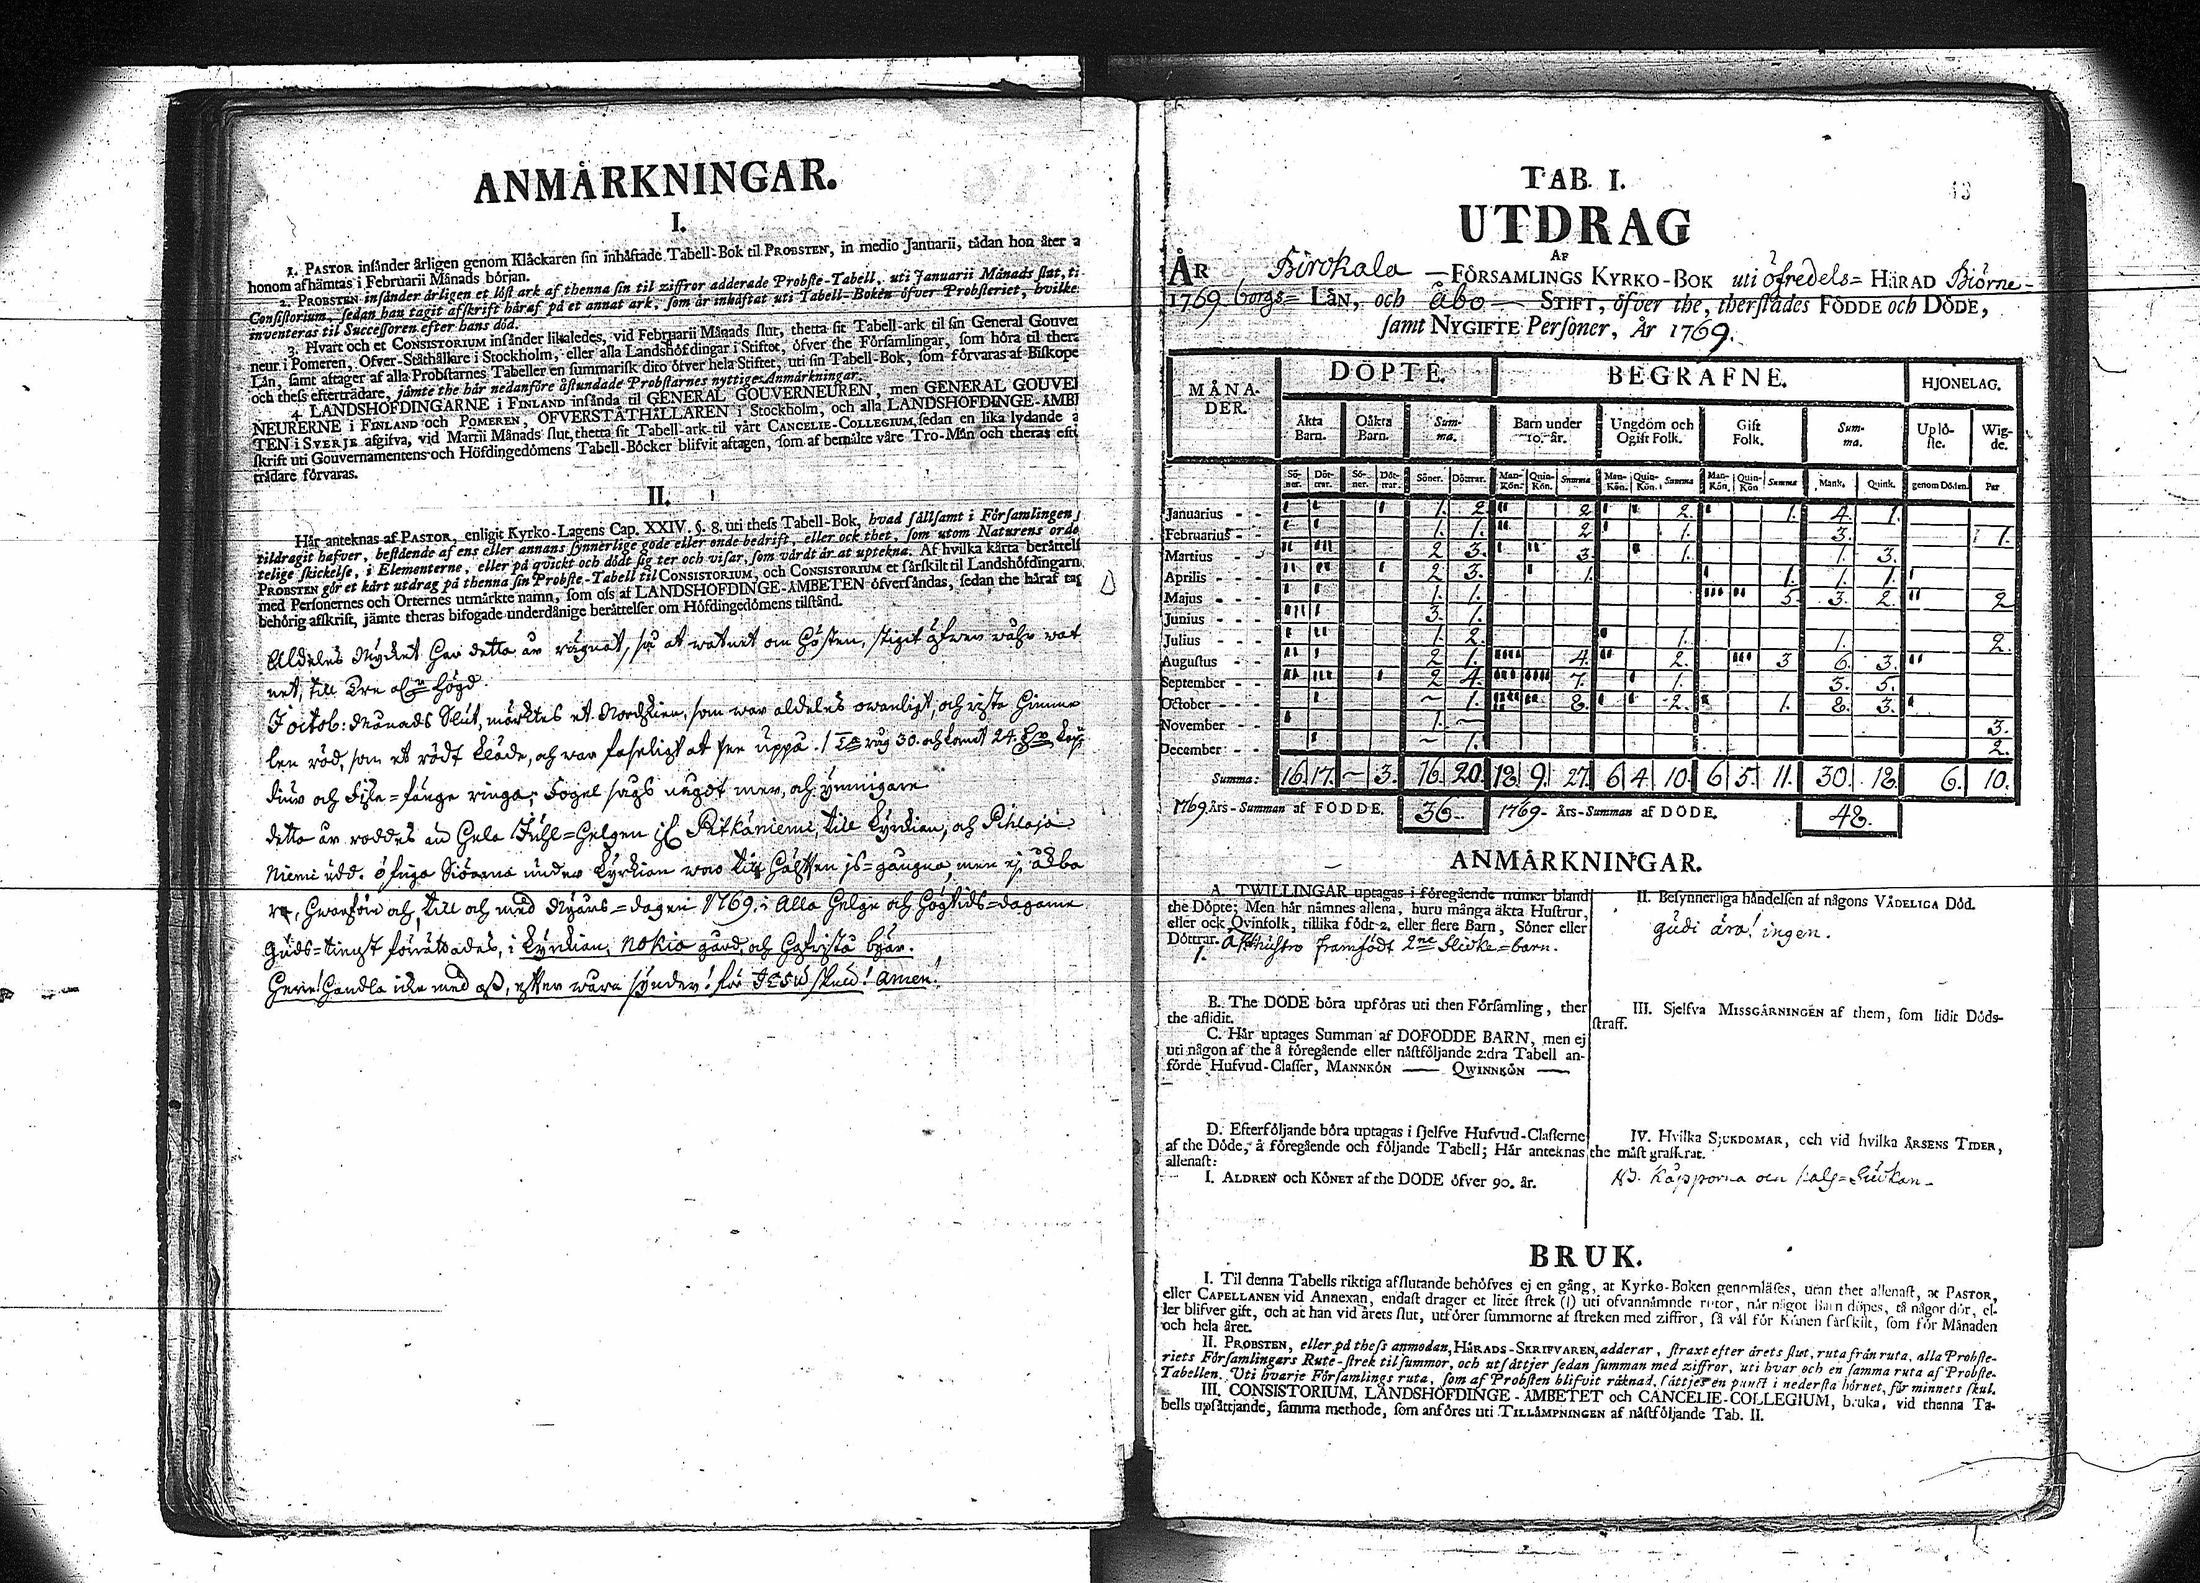 ANMÄRKNINGAR.
I.
1. PASTOR insånder årligen genom Klåckaren sin inhåftade Tabell-Bok til PROBSTEN, in medio Januarii, tådan hon åter a
honom afhämtas i Februarii Månads början.
2. PROBSTEN insånder årligen et löst ark af thenna sin til ziffror adderade Probste-Tabell, uti Januarii Månads slut, ti
Consistorium, sedan han tagit afskrift håraf på et annat ark, som år inhåftat uti Tabell-Boken öfver Probsteriet, hvilke
inventeras til Successoren efter hans död.
3. Hvart och et CONSISTORIUM insånder likaledes, vid Februarii Månads slut, thetta sit Tabell-ark til sin General Gouver
neur i Pomeren, Öfver-Ståthållare i Stockholm, eller alla Landshöfdingar i Stiftet, öfver the Församlingar, som höra til thera
Lån, samt aftager af alla Probstarnes Tabeller en summarisk dito öfver hela Stiftet, uti sin Tabell-Bok, som förvaras af Biskope
och thess eftertrådare, jåmte the hår nedanföre åstundade Probstarnes nyttiges Anmårkningar.
4. LANDSHÖFDINGARNE i FINLAND insånda til GENERAL GOUVERNEUREN, men GENERAL GOUVER
NEURERNE i FINLAND och POMEREN, ÖFVERSTÅTHÅLLAREN i Stockholm, och alla LANDSHÖFDINGE-ÅMBE
TEN i SVERJE afgifva, vid Martii Månads slut, thetta sit Tabell-ark til vårt CANCELIE-COLLEGIUM, sedan en lika lydande a
skrift uti Gouvernamentens och Höfdingedömens Tabell-Böcker blifvit aftagen, som af bemålte våre Tro-Mån och theras efte
trådare förvaras.
II.
Hår anteknas af PASTOR, enligit Kyrko-Lagens Cap. XXIV. §. 8. uti thess Tabell-Bok, hvad sållsamt i Församlingen
tildragit hafver, bestående af ens eller annans synnerlige gode eller onde bedrift, eller ock thet, som utom Naturens orde
telige skickelse, i Elementerne, eller på qvickt och dödt sig ter och visar, som vårdt år at uptekna. Af hvilka kårta beråttels
PROBSTEN gör et kårt utdrag på thenna sin Probste-Tabell til CONSISTORIUM, och CONSISTORIUM et sårskilt til Landshöfdingarn
med Personernes och Orternes utmårkte namn, som oss af LANDSHÖFDINGE-ÅMBETEN öfversåndas, sedan the håraf tag
behörig afskrift, jåmte theras bifogade underdånige beråttelser om Höfdingedömens tilstånd.
Aldeles Mycket har detta år rägnat, så at watnet om Hösten, stigit öfwer wåhr wat
net, till Tre alnr högd.
I octob: Månads Slut, märktes et Nordskien, som war aldeles owanligt, och wiste Himme
len röd, som et rödt kläde, och war faseligt at see uppå. 1 Tna rug 30. och Korn 24. Kop
och Fiske-fänge ringa; Fogel sågs något mer, och ymnigare
detta år roddes än hela Juhl-Helgen if Pitkäniemi, till Kyrkian, och Pihlaja
Niemi udd. öfriga Siöarna under Kyrkian woro till Hälften is-gångna, men ej åkba
ra, hwarföre och, till och med Nyårs-dagen 1769. i Alla Helge och Högtids-dagarne
Guds-tienst förrättades, i Kyrkian, Nokia gård, och Hatista byar.
Herre! Handla icke med oss, efter wåra synder! för JESU skuld! Amen!
TAB. I.
UTDRAG
AF
ÅR Birckala — FÖRSAMLINGS KYRKO-BOK uti öfredels= HÄRAD Biörne-
1769 borgs= LÅN, och åbo — STIFT, öfver the, therstådes FÖDDE och DÖDE,
samt NYGIFTE Personer, År 1769.
MÅNA-DER. DÖPTE. BEGRAFNE. HJONELAG.
Åkta Barn. Oåkta Barn. Sum-ma. Barn under 10. år. Ungdom och Ogift Folk. Gift Folk. Sum-ma. Uplö-ste. Wig-de.
Sö-ner. Döt-trar. Sö-ner. Döt-trar. Söner. Döttrar. Man-Kön. Quin-Kön. Summa Man-Kön. Quin-Kön. Summa Man-Kön. Quin-Kön Summa Mank. Quink. genom Döden. Par
Januarius - - 1. 2. 2. 2. 1. 4. 1.
Februarius - - 1. 1. 2 1. 3. 1.
Martius - - 2 3. 3. 1. 1. 3.
Aprilis - - - 2 3. 1. 1. 1. 1.
Majus - - - 1. 1. 5. 3. 2. 2
Junius - - - 3. 1.
Julius - - - 1. 2. 1. 1. 2.
Augustus - - 2 1. 4. 2. 3 6. 3.
September - - 2 4. 7. 1. 3. 5.
October - - ~ 1. 8. 2. 1. 8. 3.
November - - 1. ~ 3.
December - - ~ 1. 2.
Summa: 16 17. ~ 3. 16 20 18 9. 27. 6 4. 10. 6 5. 11. 30. 18. 6. 10.
1769. Års-Summan af FÖDDE. 36. 1769- Års-Summan af DÖDE. 48.
ANMÄRKNINGAR.
A. TWILLINGAR uptagas i föregående numer bland
the Döpte; Men hår nåmnes allena, huru många åkta Hustrur,
eller ock Qvinfolk, tillika födt 2, eller flere Barn, Söner eller
Döttrar. 1. Akthustro framfödt 2ne flicke=barn.
B. The DÖDE böra upföras uti then Församling, ther
the aflidit.
C. Hår uptages Summan af DÖFÖDDE BARN, men ej
uti någon af the å föregående eller nåstföljande 2:dra Tabell an-
förde Hufvud-Classer, MANNKÖN — QWINNKÖN —
D. Efterföljande böra uptagas i sjelfve Hufvud-Classerne
af the Döde, å föregående och följande Tabell; Hår anteknas
allenast:
I. ALDREN och KÖNET af the DÖDE öfver 90. år.
II. Besynnerliga håndelsen af någons VÅDELIGA Död.
gudi ära! ingen.
III. Sjelfva MISSGÅRNINGEN af them, som lidit Döds-
straff.
IV. Hvilka SJUKDOMAR, och vid hvilka ÅRSENS TIDER,
the måst grasserat.
NB. Kopporna och hals=Siukan.
BRUK.
I. Til denna Tabells riktiga afslutande behöfves ej en gång, at Kyrko-Boken genomläses, utan thet allenast, at PASTOR,
eller CAPELLANEN vid Annexan, endast drager et litet strek (|) uti ofvannåmnde rutor, når något Barn döpes, då någor dör, el-
ler blifver gift, och at han vid årets slut, utförer summorne af streken med ziffror, så vål för Könen sårskilt, som för Månaden
och hela året.
II. PROBSTEN, eller på thess anmodan, HÄRADS-SKRIFVAREN, adderar, straxt efter årets slut, ruta från ruta, alla Probste-
riets Församlingars Rute-strek til summor, och utsåttjer sedan summan med ziffror, uti hvar och en samma ruta af Probste-
Tabellen. Uti hvarje Församlings ruta, som af Probsten blifvit råknad, såttjes en punct i nedersta hörnet, för minnets skul.
III. CONSISTORIUM, LANDSHÖFDINGE-ÅMBETET och CANCELIE-COLLEGIUM, bruka, vid thenna Ta-
bells upsåttjande, samma methode, som anföres uti TILLÄMPNINGEN af nåstföljande Tab. II.